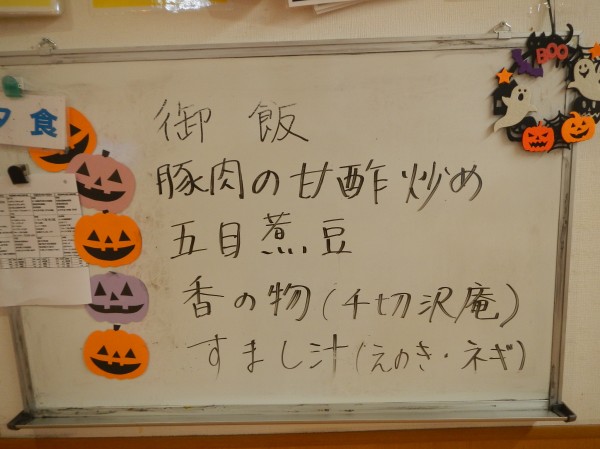 夕食
御飯
豚肉の甘酢炒め
五目煮豆
香の物(千切沢庵)
すまし汁(えのき・ネギ)
BOO